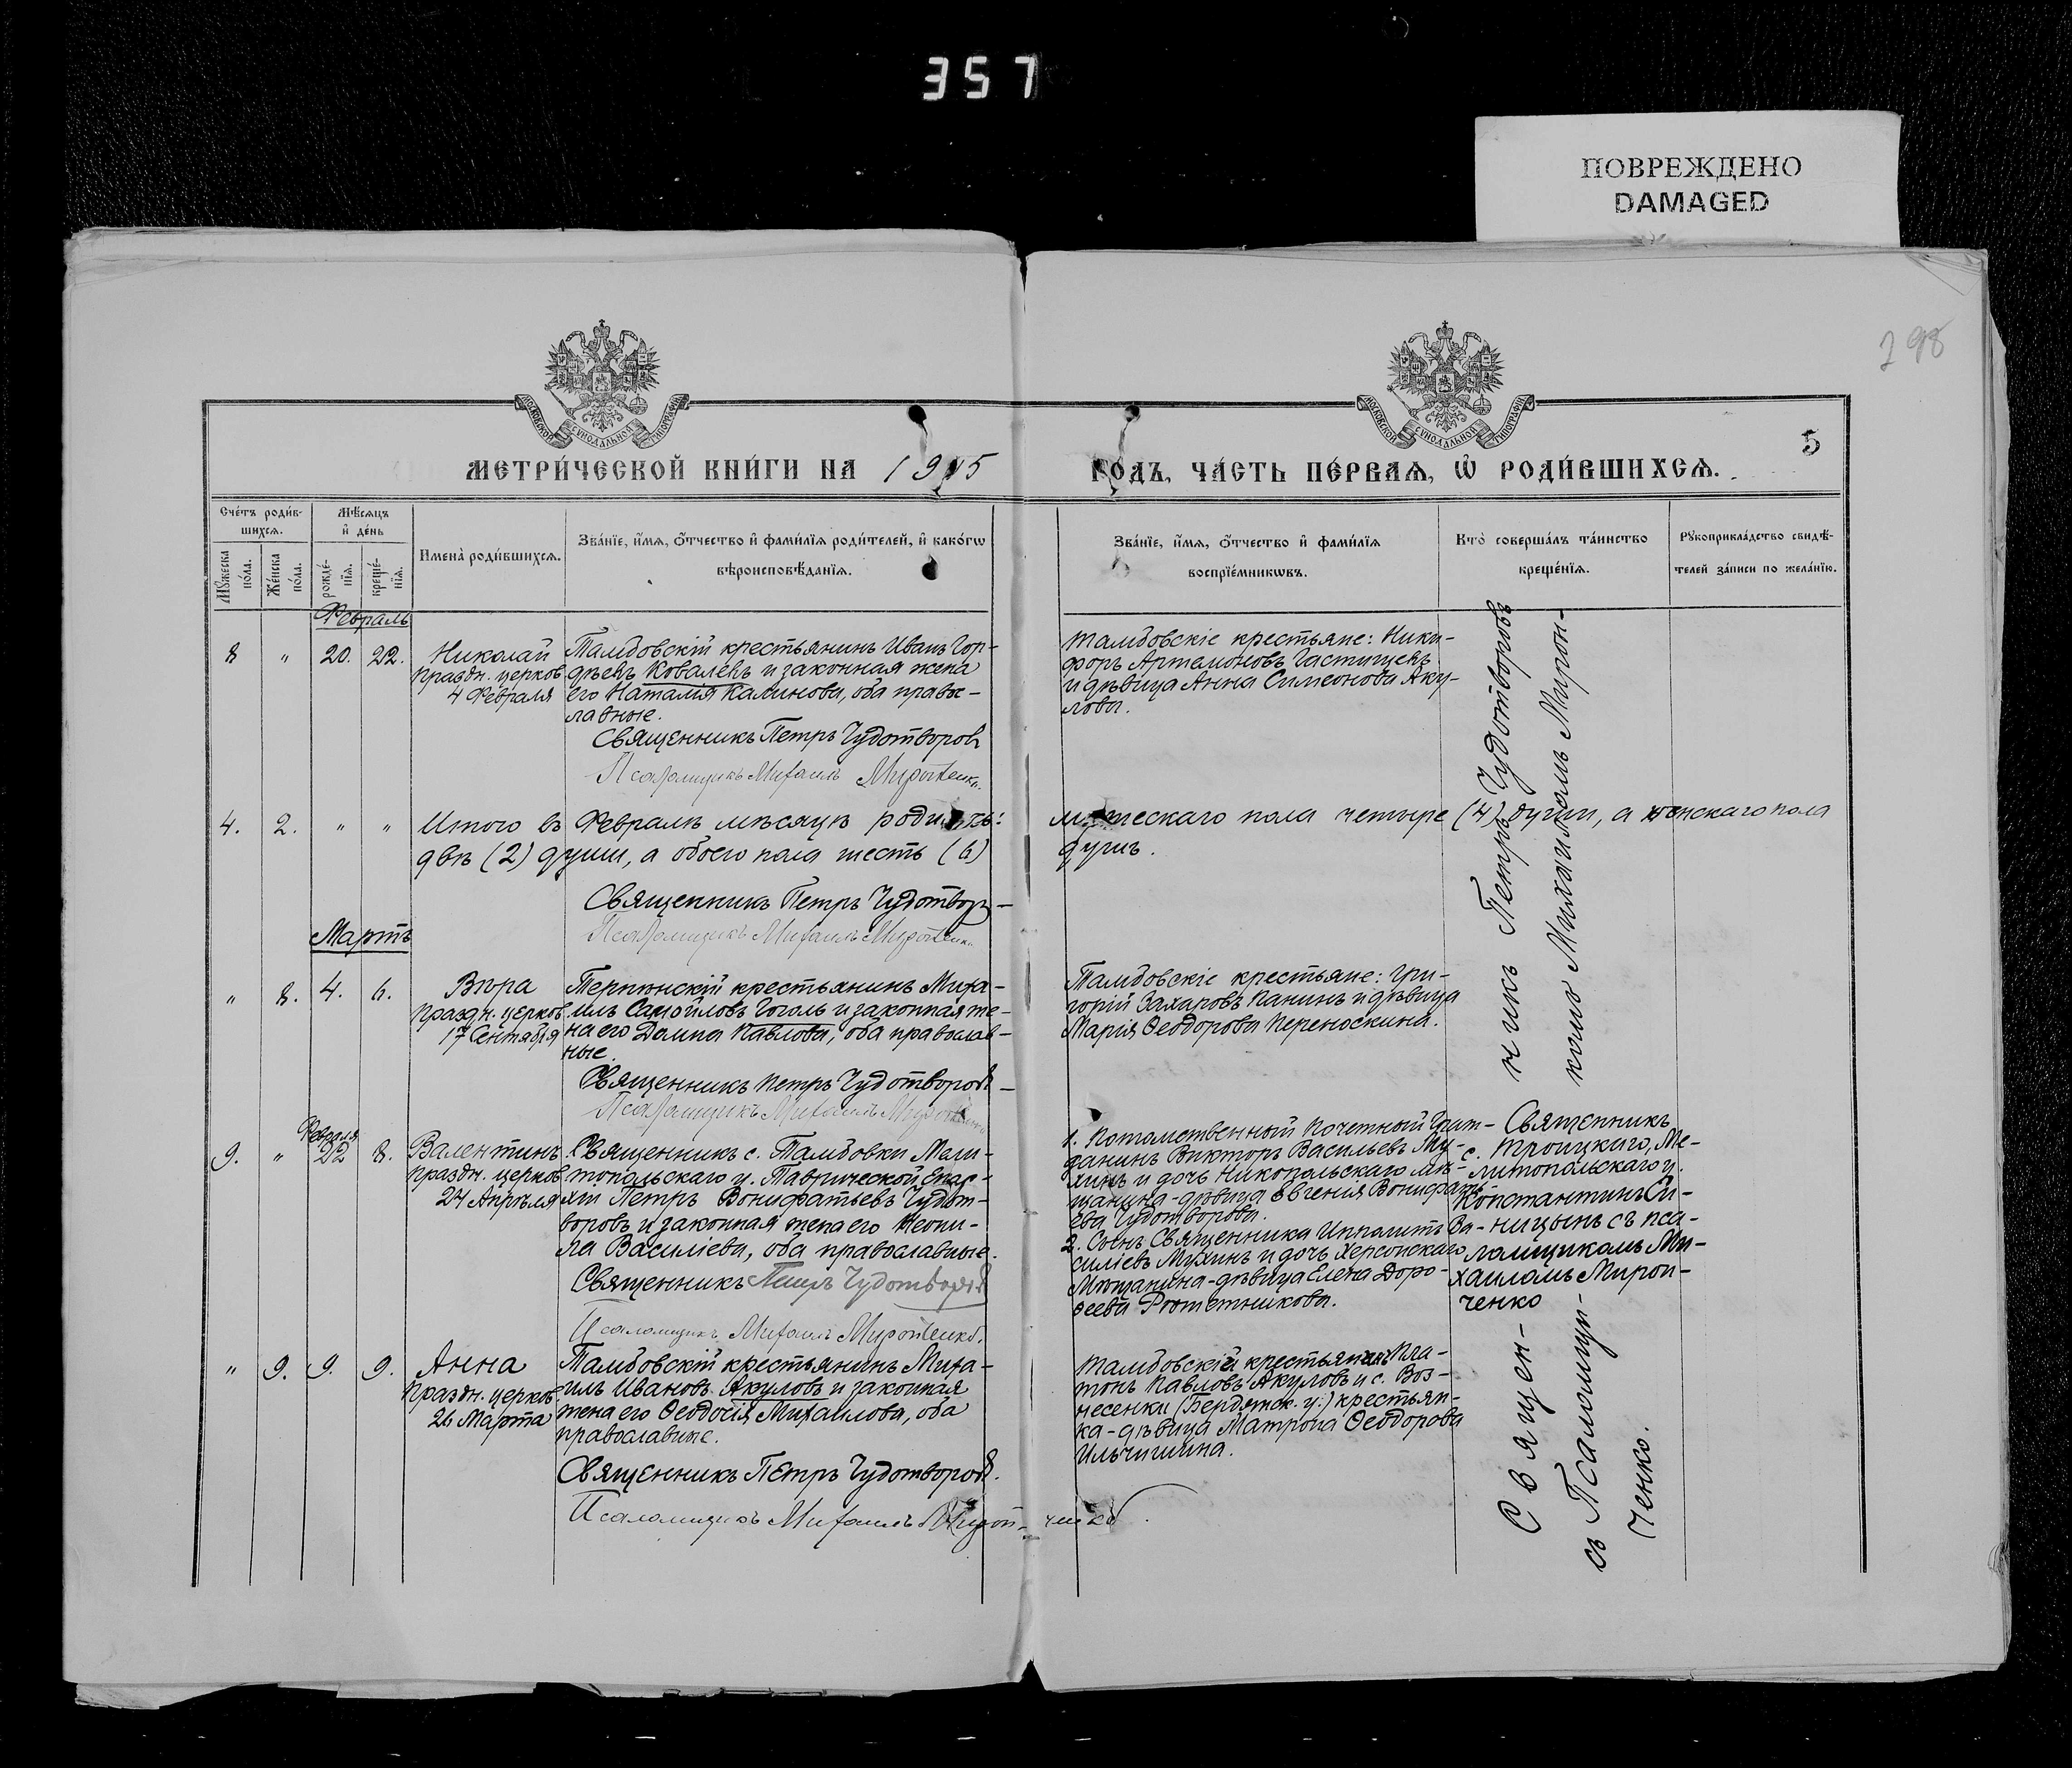 357
ПОВРЕЖДЕНО
DAMAGED
298
5
МОСКОВСКОЙ СѴНОДАЛЬНОЙ ТИПОГРАФІИ
МОСКОВСКОЙ СѴНОДАЛЬНОЙ ТИПОГРАФІИ
МЕТРИ́ЧЕСКОЙ КНИ́ГИ НА 1915 ГОДЪ, ЧА́СТЬ ПЕ́РВАѦ, Ѡ҆ РОДИ́ВШИХСѦ.
Сче́тъ роди́в-
шихсѧ.
Мѣ́сѧцъ
и҆ де́нь
Мꙋ́жеска
по́ла.
Же́нска
по́ла.
рожде́-
нїѧ.
креще́-
нїѧ.
Имена̀ роди́вшихсѧ.
Зва́нїе, и҆́мѧ, ѻ҆́тчество и҆ фами́лїѧ роди́телей, и҆ како́гѡ
вѣроисповѣ́данїѧ.
Зва́нїе, и҆́мѧ, ѻ҆́тчество и҆ фами́лїѧ
воспрїе́мникѡвъ.
Кто̀ соверша́лъ та́инство
креще́нїѧ.
Рꙋкоприкла́дство свидѣ́-
телей за́писи по жела́нїю.
Февраль
8 " 20. 22. Николай
Праздн. церков
4 Февраля
Тамбовскій крестьянинъ Иванъ Гор-
дѣевъ Ковалевъ и законная жена
его Наталія Калинова, оба право-
славные.
Священникъ Петръ Чудотворовъ
Псаломщикъ Михаилъ Миронченко.
Тамбовскіе крестьяне: Ники-
форъ Артемоновъ Частищевъ
и дѣвица Анна Симеонова Аку-
лова.
4. 2. " " Итого въ Февралѣ мѣсяцѣ родилось: мужескаго пола четыре (4) души, а женскаго пола
двѣ (2) души, а обоего пола шесть (6) душъ.
Священникъ Петръ Чудотвор-
Псаломщикъ Михаилъ Миронченко
Мартъ
" 8. 4. 6. Вѣра
Праздн. церков.
17 Сентября
Терпѣнскій крестьянинъ Миха-
илъ Самойловъ Гоголь и законная же-
на его Домна Павлова, оба православ-
ные.
Священникъ Петръ Чудотворовъ-
Псаломщикъ Михаилъ Миронченко
Тамбовскіе крестьяне: Гри-
горій Захаровъ Панинъ и дѣвица
Марія Ѳеодорова Переноскина.
Февраля
9. " 22 8. Валентинъ
Праздн. церков
24 Апрѣля
Священникъ с. Тамбовки Мели-
топольскаго у. Таврической Епар-
хіи Петръ Вонифатьевъ Чудот-
воровъ и законная жена его Неони-
ла Василіева, оба православные.
Священникъ Петръ Чудотворовъ
Псаломщикъ Михаилъ Миронченко.
1. Потомственный Почетный Граж-
данинъ Викторъ Васильевъ Му-
хинъ и дочь Никопольскаго мѣ-
щанина-дѣвица Евгенія Вонифать-
ева Чудотворова.
2. Сынъ Священника Ипполитъ Ва-
силіевъ Мухинъ и дочь Херсонскаго
Мѣщанина-дѣвица Елена Доро-
ѳеева Рѣшетникова.
Священникъ
с. Троицкаго, Ме-
литопольскаго у.
Константинъ Си-
ницынъ съ пса-
ломщикомъ Ми-
хаиломъ Мирон-
ченко
" 9. 9. 9. Анна
Праздн. церков.
26 Марта
Тамбовскій крестьянинъ Миха-
илъ Ивановъ Акуловъ и законная
жена его Ѳеодосія Михаилова, оба
православные.
Священникъ Петръ Чудотворовъ.
Псаломщикъ Михаилъ Мирон-ченко.
Тамбовскій крестьянинъ Пла-
тонъ Павловъ Акуловъ и с. Воз-
несенки (Бердянск. у.) крестьян-
ка-дѣвица Матрона Ѳеодорова
Ильчишина.
Священ-никъ Петръ Чудотворовъ
съ Псаломщи-комъ Михаиломъ Мирон-
ченко.